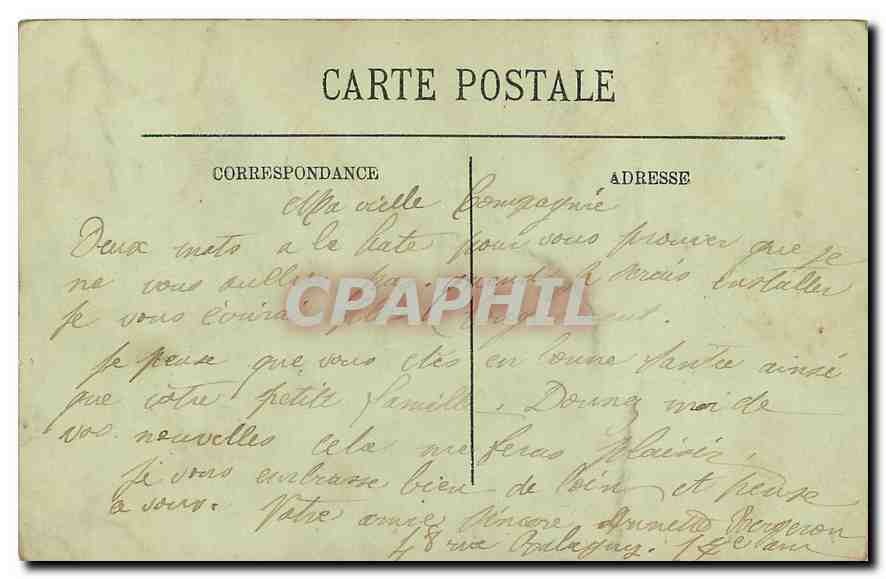 CARTE POSTALE
CORRESPONDANCE
ADRESSE
Ma vielle Compagnie
Deux mots a la hate pour vous prouver que je
ne vous oublie pas quand je serais installer
je vous écrirai plus longuement.
CPAPHIL
je pense que vous etes en bonne santée ainsi
que votre petite famille. Donnez moi de
vos nouvelles cela me feras plaisir,
je vous embrasse bien de loin et pense
a vous. Votre amie sincere Bergeron
48 rue Balagny. 17e